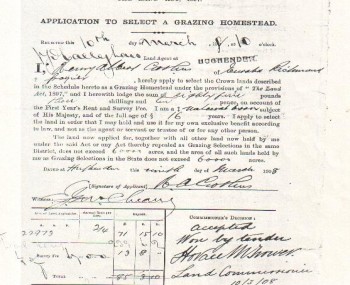 APPLICATION TO SELECT A GRAZING HOMESTEAD.
RECEIVED THIS 10th day of March at 10 o'clock.
Land Agent at HUGHENDEN
I, Henry Albert of Richmond
, hereby apply to select the Crown lands described
in the Schedule hereto as a Grazing Homestead under the provisions of "The Land
Act, 1897," and I herewith lodge the sum of Eighty five pounds
shillings and ten pence, on account of
the First Year's Rent and Survey Fee. I am a natural born subject
of His Majesty, and of the full age of 16 years. I apply to select
the land in order that I may hold and use it for my own exclusive benefit according
to law, and not as the agent or servant or trustee of or for any other person.
The land now applied for, together with all other land now held by me
under the said Act or any Act thereby repealed as Grazing Selections in the same
District, does not exceed acres, and the area of all such lands held by
me as Grazing Selections in the State does not exceed acres.
DATED at Hughenden this ninth day of March 1908
(Signature of Applicant)
Witness
COMMISSIONER'S DECISION:
accepted
Won by tender
Horace
Land Commissioner
10/3/08
22973 2/4 71 15 10
Survey Fee 13 8 -
TOTAL 85 3 10